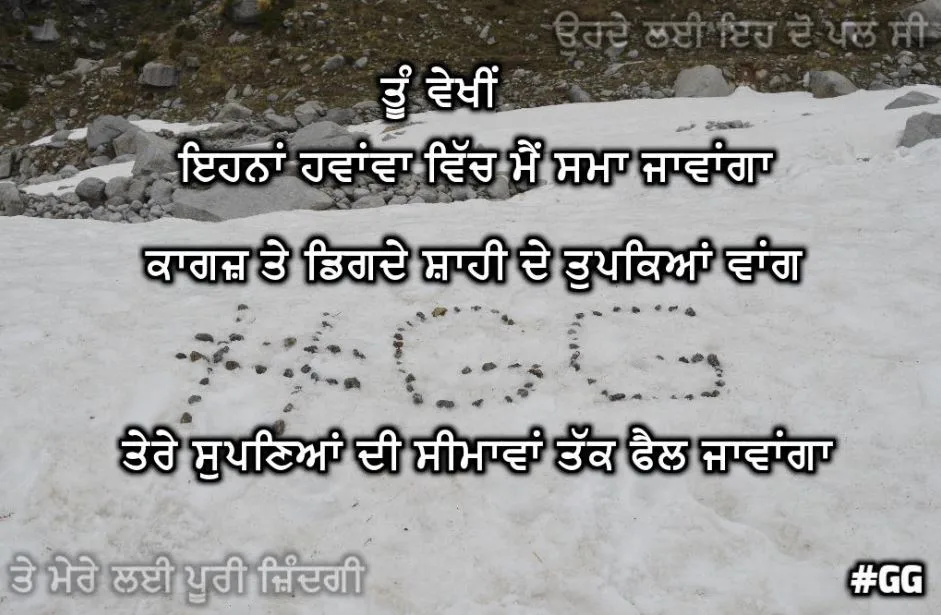 ੳਰਦੇ ਲਈ ਇਹ ਦੋ ਪਲ ਸੀ
ਤੂੰ ਵੇਖੀਂ
ਇਹਨਾਂ ਹਵਾਂਵਾ ਵਿੱਚ ਮੈਂ ਸਮਾ ਜਾਵਾਂਗਾ
ਕਾਗਜ਼ ਤੇ ਡਿਗਦੇ ਸ਼ਾਹੀ ਦੇ ਤੁਪਕਿਆਂ ਵਾਂਗ
#GG
ਤੇਰੇ ਸੁਪਣਿਆਂ ਦੀ ਸੀਮਾਵਾਂ ਤੱਕ ਫੈਲ ਜਾਵਾਂਗਾ
ਤੇ ਮੇਰੇ ਲਈ ਪੂਰੀ ਜ਼ਿੰਦਗੀ
#GG